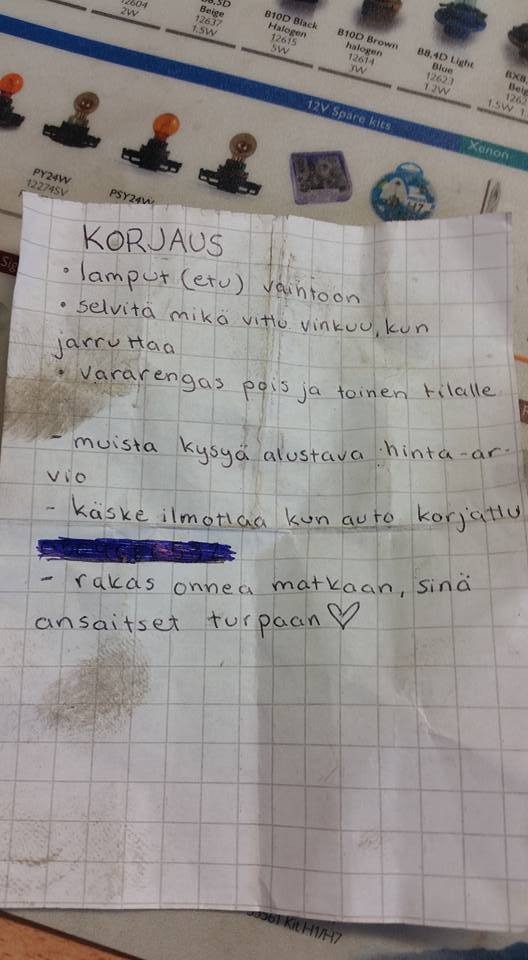 12604
2W
B8,5D
Beige
12637
1.5W
B10D Black
Halogen
12615
5W
B10D Brown
halogen
12614
3W
B8,4D Light
Blue
12623
1.2W
12V Spare kits
Xenon
PY24W
12274SV
PSY24W
H7
KORJAUS
• lamput (etu) vaihtoon
• selvitä mikä vittu vinkuu, kun
jarruttaa
• vararengas pois ja toinen tilalle
- muista kysyä alustava hinta-ar-
vio
- käske ilmottaa kun auto korjattu
- rakas onnea matkaan, sinä
ansaitset turpaan ♡
Kit H1/H7